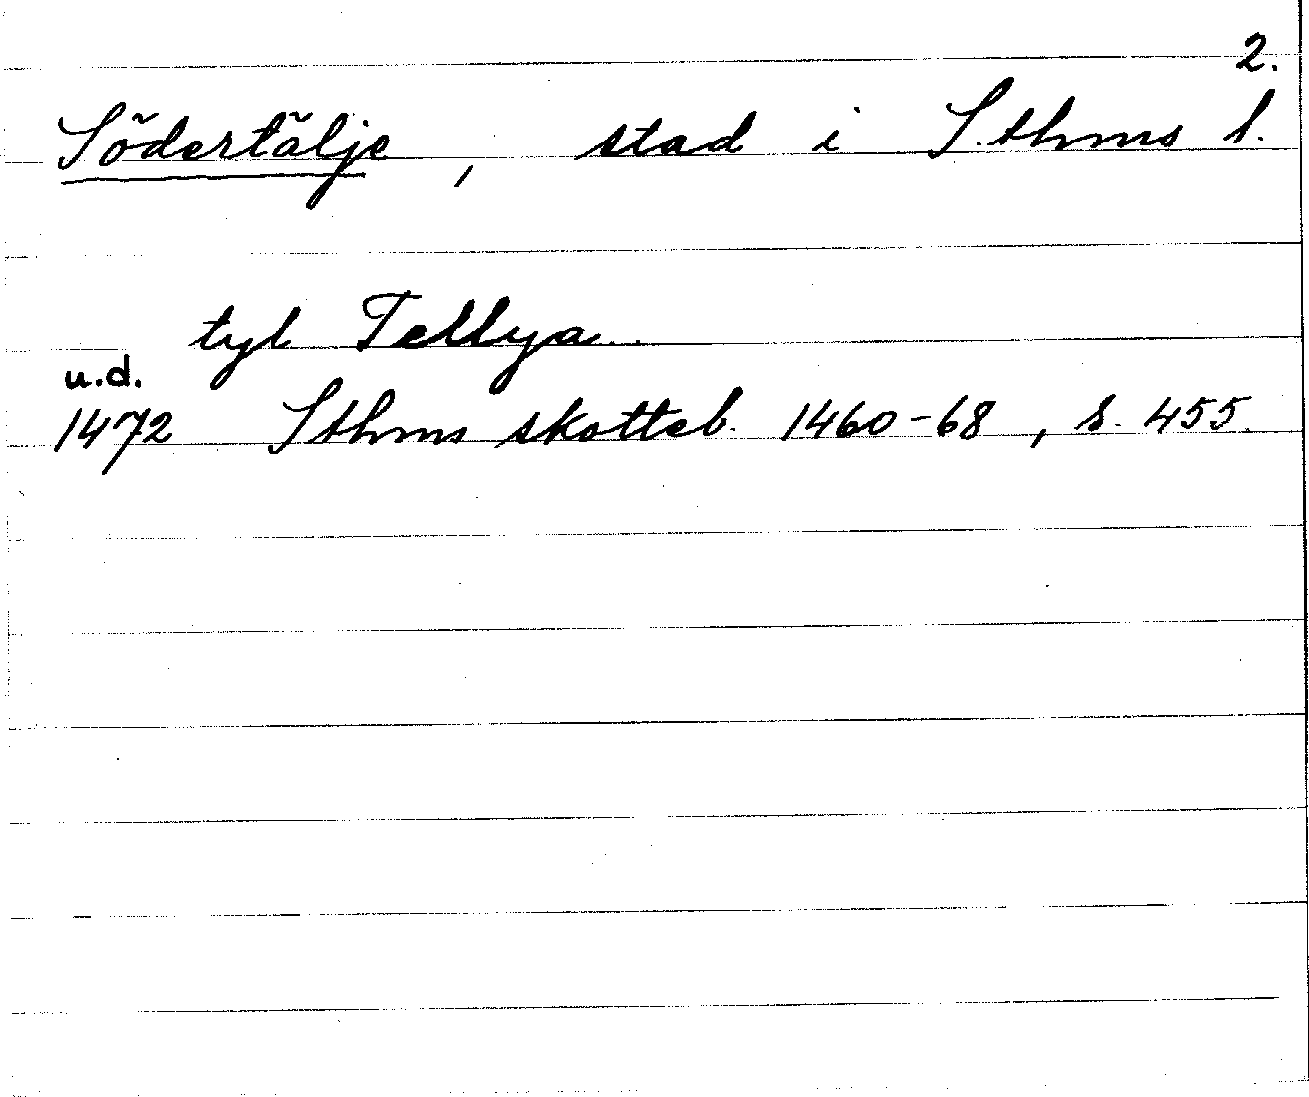 2.
Södertälje, stad i Sthms l.
tyl Tellya
u.d.
1472 Sthms skotteb. 1460-68, s. 455.